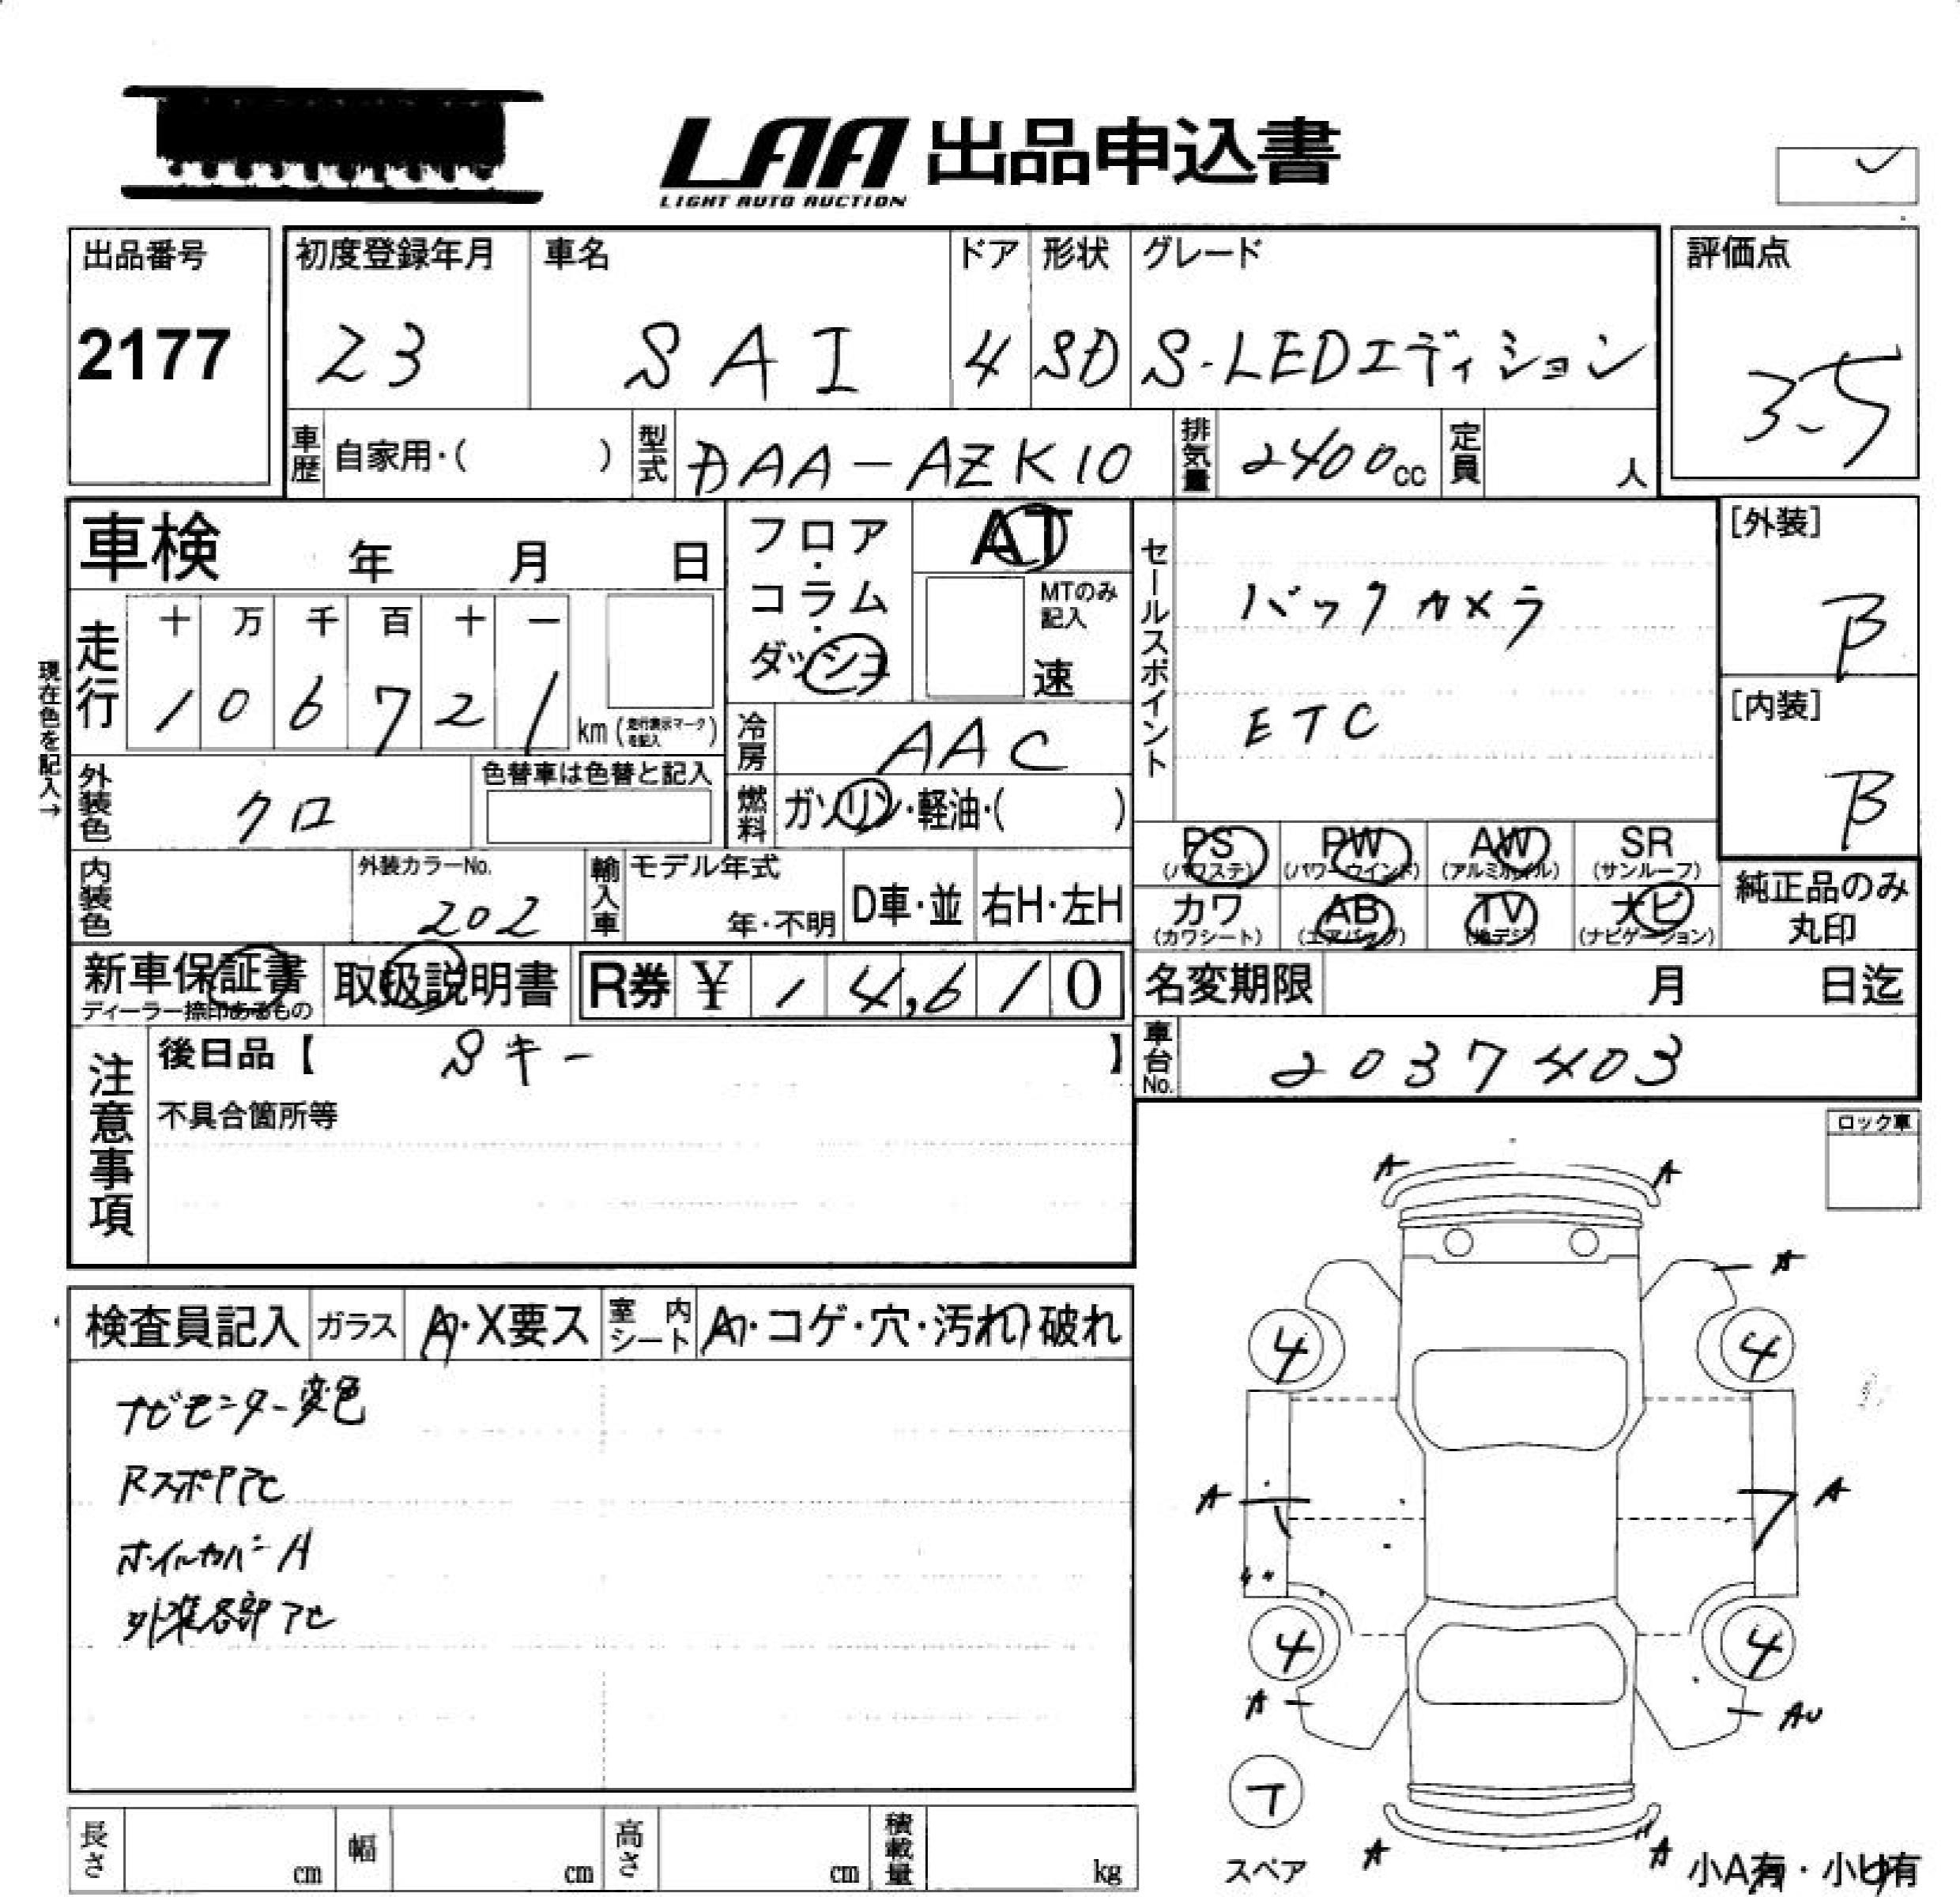 LAA 出品申込書
LIGHT AUTO AUCTION
出品番号
2177
初度登録年月
23
車名
SAI
ドア
4
形状
SD
グレード
S・LEDエディション
評価点
3.5
車歴
自家用・( )
型式
DAA-AZK10
排気量
2400cc
定員
人
車検 年 月 日
フロア・コラム・ダッシュ
AT
MTのみ記入
速
セールスポイント
バックカメラ
ETC
[外装]
B
[内装]
B
現在色を記入→
走行
十 万 千 百 十 一
1 0 6 7 2 1
km (走行表示マークを記入)
冷房
AAC
外装色
クロ
色替車は色替と記入
燃料
ガソリン・軽油・( )
PS
(パワステ)
PW
(パワーウインド)
AW
(アルミホイル)
SR
(サンルーフ)
カワ
(カワシート)
AB
(エアバッグ)
TV
(地デジ)
ナビ
(ナビゲーション)
純正品のみ丸印
内装色
外装カラーNo.
202
輸入車
モデル年式
年・不明
D車・並
右H・左H
新車保証書
ディーラー捺印あるもの
取扱説明書
R券 ¥ 1 4,6 1 0
名変期限 月 日迄
注意事項
後日品【 Sキー 】
不具合箇所等
車台No.
2037403
ロック車
検査員記入
ガラス
A・X要ス
室内シート
・コゲ・穴・汚れ・破れ
ナビモニター変色
ホイルカバーA
A A
A
4 4
A A
4 4
A AU
T
スペア
A A
小A有・小U有
長さ cm
幅 cm
高さ cm
積載量 kg